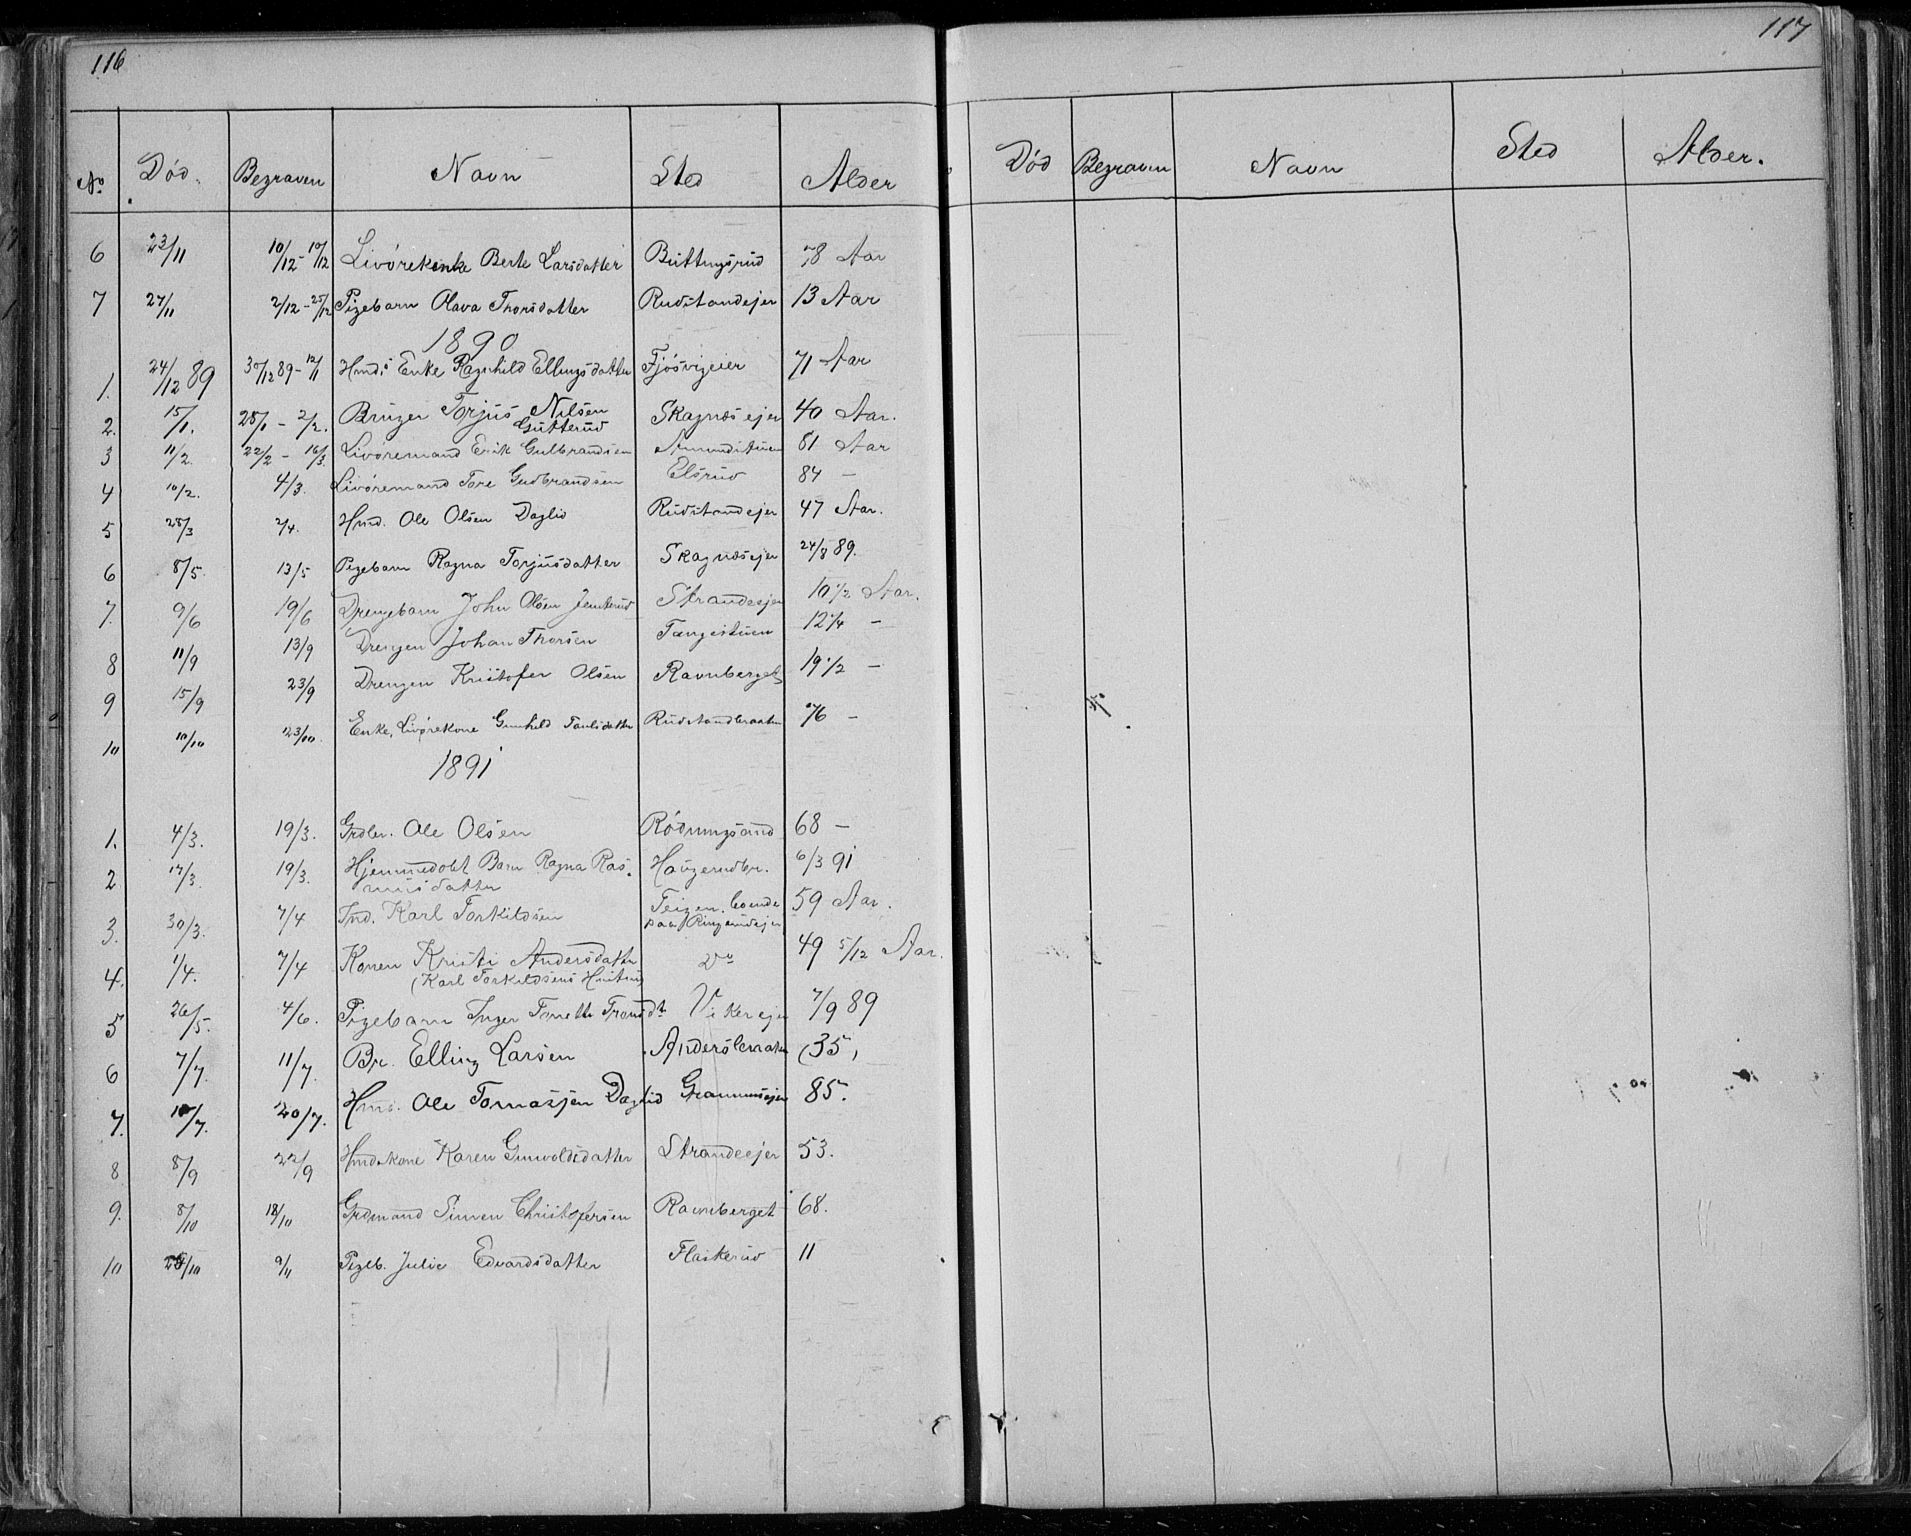 116
No Død. Begraven Navn Sted Alder
6 23/11 10/12 - 10/12 Livørekenke Berte Larsdatter Buttingsrud 78 Aar
7 27/11 2/12 - 25/12 Pigebarn Olava Thorsdatter Rudstandejer 13 Aar
1890
1. 24/12 89 30/12 89 - 12/1 Hmds Enke Ragnhild Ellingsdatter Fjösvigeier 71 Aar
2. 15/1. 25/1 - 2/2. Bruger Torjus Nilsen Skagnæsejer 40 Aar.
Gutterud
3 11/2. 22/2 - 16/3. Livøremand Erik Gulbrandsen Amundstuen 81 Aar
4 10/2. 4/3. Livøremand Tore Gudbrandsen Elsrud 84 –
5 25/3 2/4. Hmd. Ole Olsen Daglid Rudstandejer 47 Aar.
6 8/5. 13/5 Pigebarn Ragna Torjusdatter Skagnæsejer 24/8 89.
7. 9/6 19/6 Drengebarn John Olsen Jemterud Strandeejer 10 1/2 Aar.
8 11/9 13/9 Drengen Johan Thorsen Tangestuen 12 1/4 –
9 15/9 23/9 Drengen Kristofer Olsen Ravnberget 19 1/2 –
10 10/10 23/10. Enke, Livørekone Gunhild Paulsdatter Rudstandbraaten 76 –
1891
1. 4/3. 19/3. Grdbr. Ole Olsen Rödningsand 68 –
2 17/3. 19/3. Hjemmedøbt Barn Ragna Ras- Haugerudbr. 6/3 91
musdatter
3. 30/3. 7/4 Ind. Karl Torkildsen Teigen, boende 59 Aar.
paa Ringerudejer
4. 1/4. 7/4 Konen Kristi Andersdatter Do 49 5/12 Aar.
(Karl Torkildsens Hustru)
5 26/5. 4/6. Pigebarn Inger Tonette Transdtr Vikerejer 7/9 89
6 7/7. 11/7. Br. Elling Larsen Andersbraaten (35)
7. 10/7. 20/7. Hmd. Ole Tomassen Daglid Grammsejer 85.
8 8/9 22/9 Hmdskone Karen Gunvoldsdatter Strandeejer 53.
9. 8/10 18/10 Grdmand Simen Christofersen Ravnberget 68.
10 28/10 9/11 Pigeb. Julie Edvardsdatter Flaskerud 11
117
Død Begraven Navn Sted Alder.